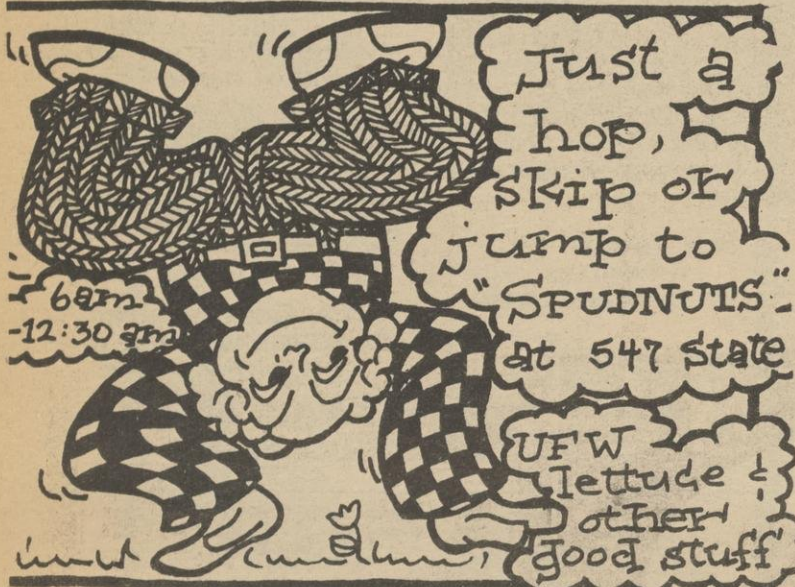 Just a
hop,
skip or
jump to
"SPUDNUTS"
at 547 State
6am
-12:30 am
UFW
lettude &
other
good stuff